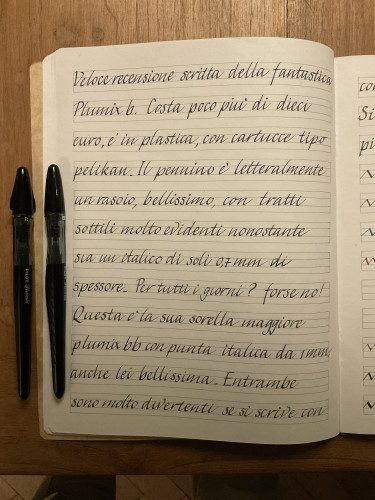 Veloce recensione scritta della fantastica
Plumix b. Costa poco più di dieci
euro, è in plastica, con cartucce tipo
pelikan. Il pennino è letteralmente
un rasoio, bellissimo, con tratti
sottili molto evidenti nonostante
sia un italico di soli 0,7 mm di
spessore. Per tutti i giorni? forse no!
Questa è la sua sorella maggiore
plumix bb con punta italica da 1mm,
anche lei bellissima. Entrambe
sono molto divertenti se si scrive con
con
Si
pi